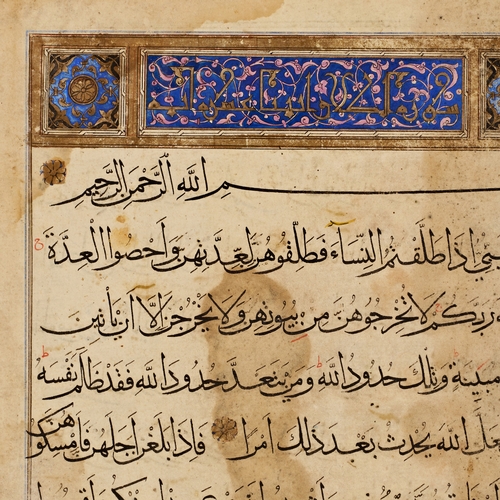 سورة الطلاق اثنتا عشرة آية
بسم الله الرحمن الرحيم
اذا طلقتم النساء فطلقوهن لعدتهن واحصوا العدة
ربكم لا تخرجوهن من بيوتهن ولا يخرجن الا ان ياتين
مبينة وتلك حدود الله ومن يتعد حدود الله فقد ظلم نفسه
لعل الله يحدث بعد ذلك امرا فاذا بلغن اجلهن فامسكوهن